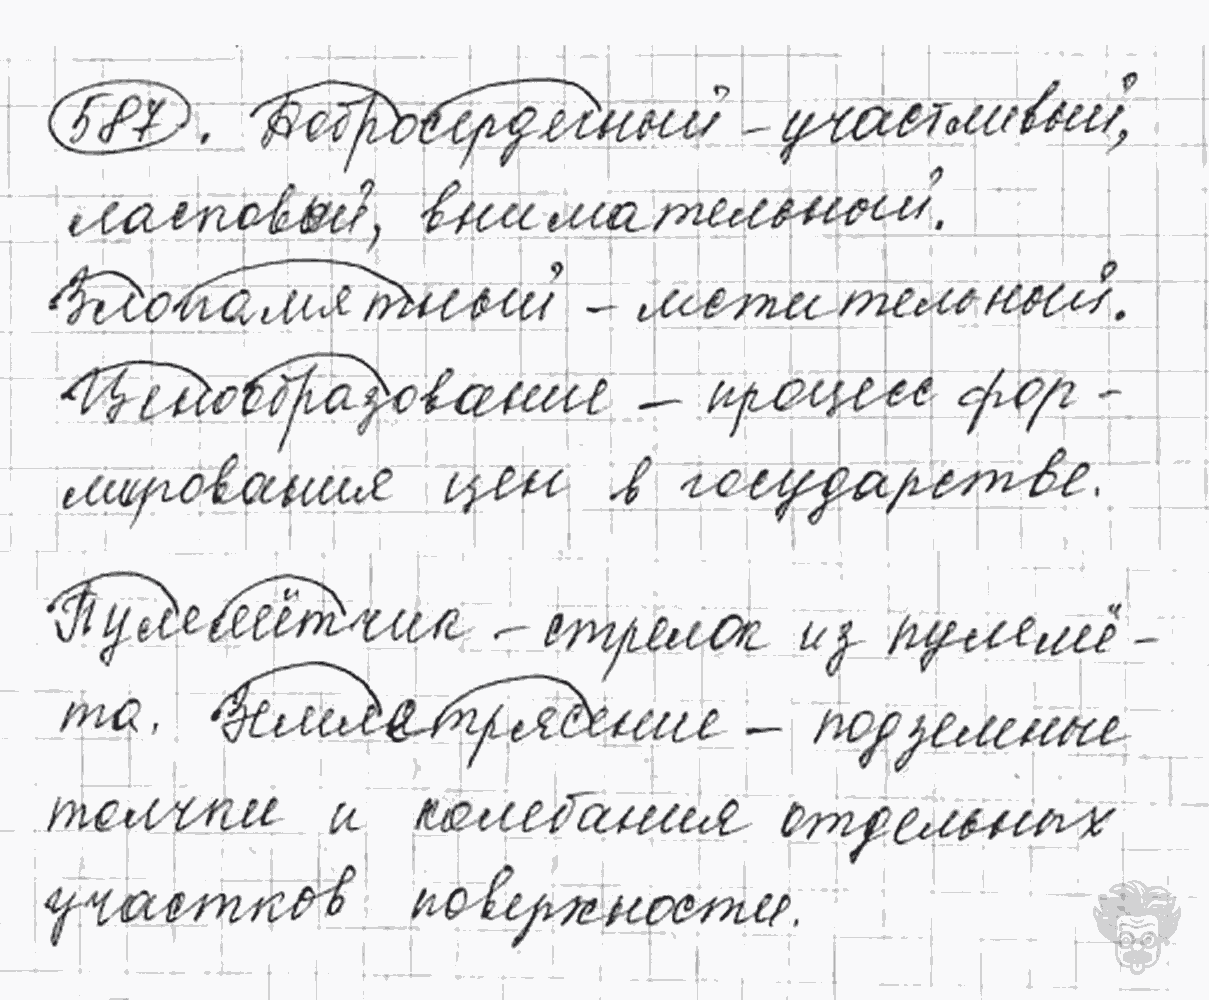 587. Добросердечный – участливый,
ласковый, внимательный.
Злопамятный – мстительный.
Ценообразование – процесс фор-
мирования цен в государстве.
Пулемётчик – стрелок из пулемё-
та. Землетрясение – подземные
толчки и колебания отдельных
участков поверхности.